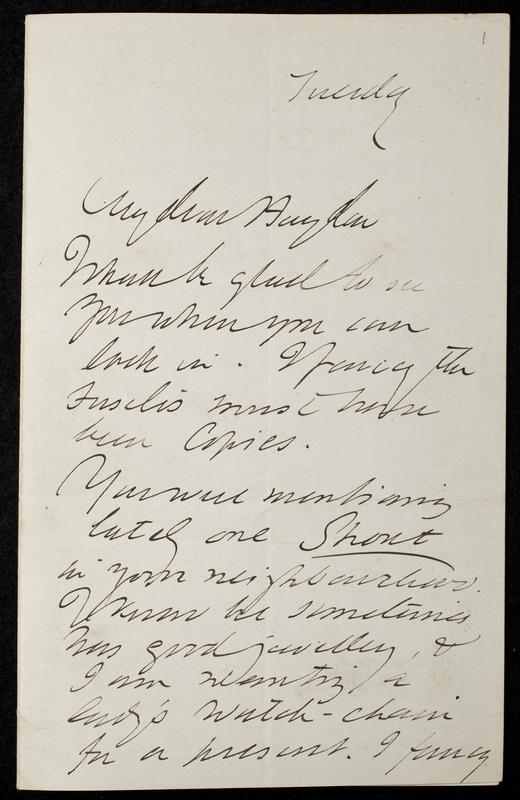 1
Tuesday
My dear Haydon
I shall be glad to see
you when you can
look in. I fancy the
Fuselis must have
been Copies.
You were mentioning
lately one Shout
in your neighbourhood.
I know he sometimes
has good jewellery, &
I am wanting a
lady's watch-chain
for a present. I fancy